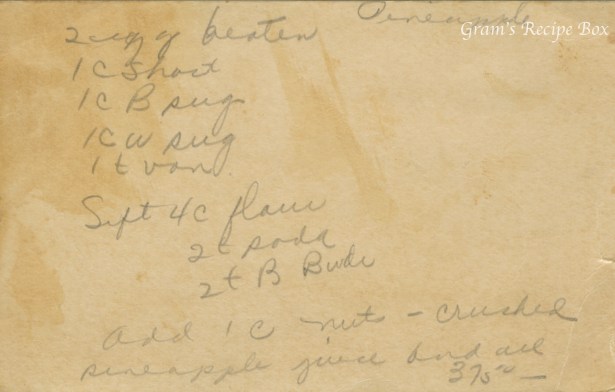 Pineapple
Gram's Recipe Box
2 egg beaten
1 C Short
1 C B sug
1 C W sug
1 t van
Sift 4 c flour
2 t soda
2 t B Bwdr
add 1 c nuts - crushed
pineapple juice and all
375° -